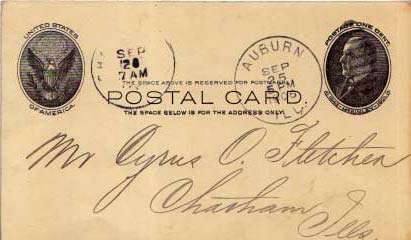 UNITED STATES
OF AMERICA
SEP
28
7 AM
AUBURN
SEP
25
PM
ILL.
POSTAGE ONE CENT.
THE SPACE ABOVE IS RESERVED FOR POSTMARK.
POSTAL CARD.
THE SPACE BELOW IS FOR THE ADDRESS ONLY.
Mr Cyrus O. Fletcher
Chatham
Ills.